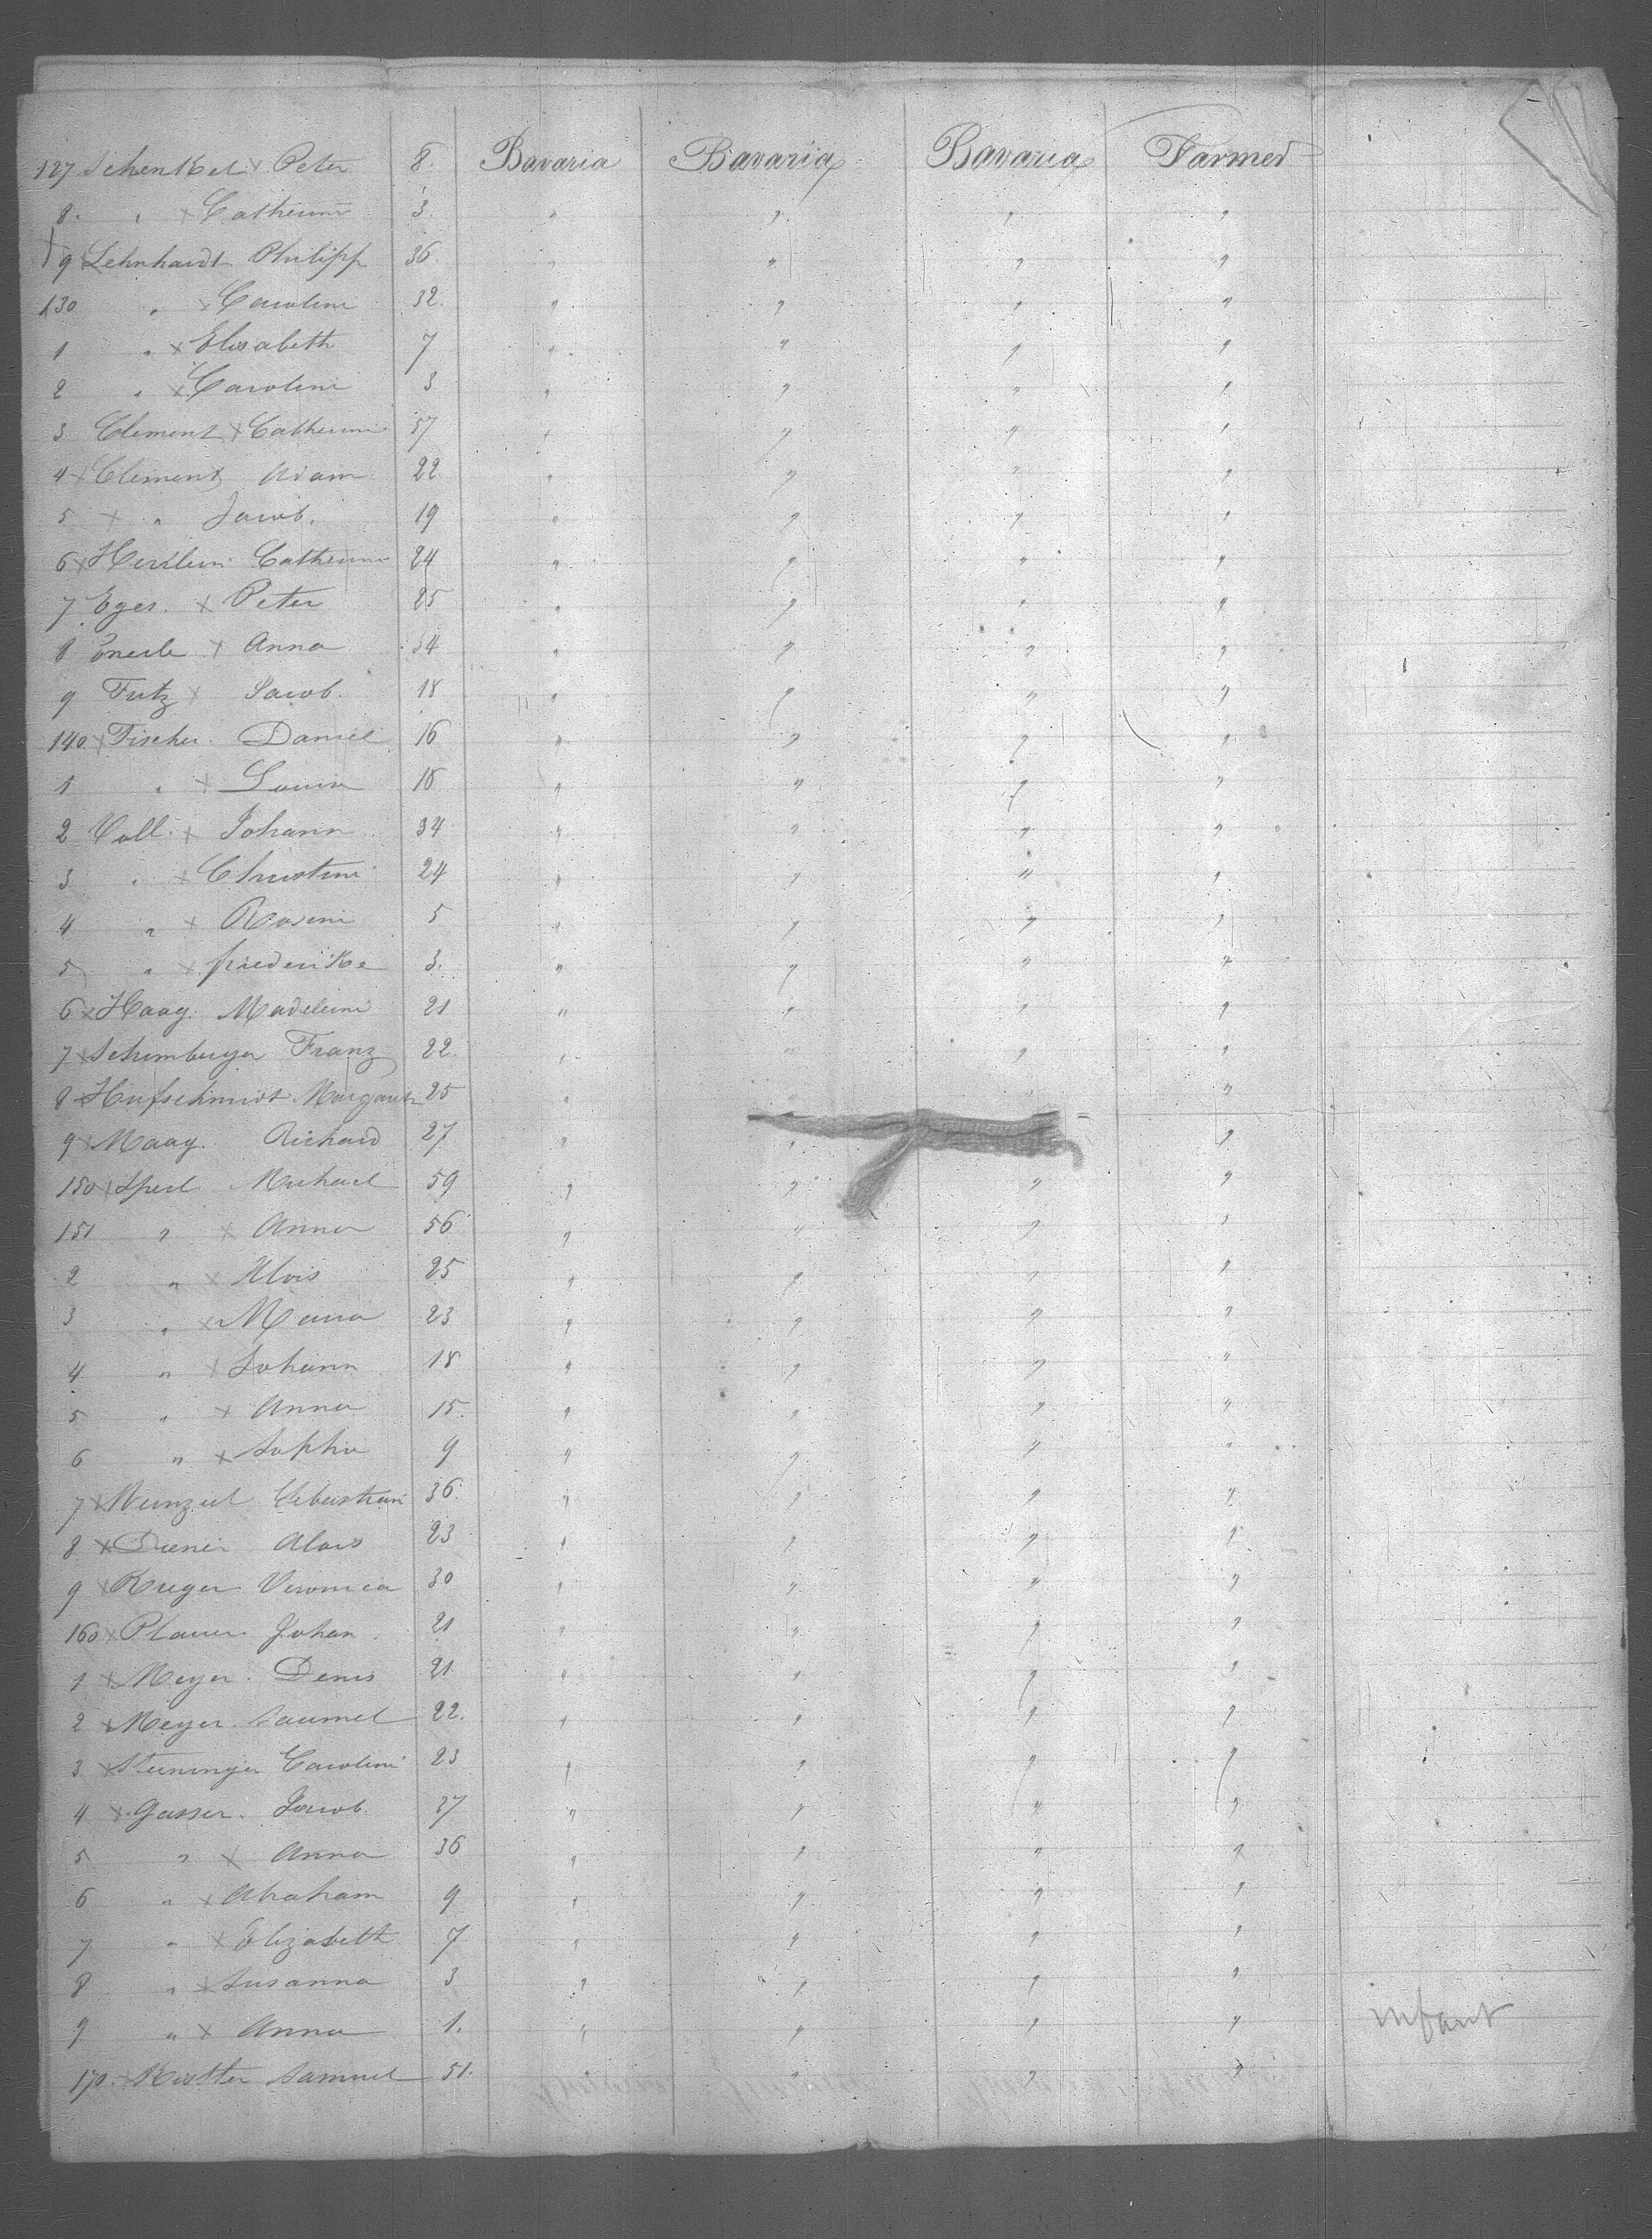 127 Schenkel x Peter 8. Bavaria Bavaria Bavaria Farmer
8. " x Catherine 3. " " " "
9 Lehnhardt Philipp 36. " " " "
130 " x Caroline 32. " " " "
1 " x Elisabeth 7 " " " "
2 " x Caroline 3 " " " "
3 Clement x Catherine 57 " " " "
4 x Clement Adam 22 " " " "
5 x " Jacob. 19 " " " "
6 x Catherine 24 " " " "
7 Eger. x Peter 25 " " " "
8 x Anna 54 " " " "
9 Fritz x Jacob. 18 " " " "
140 x Fischer. Daniel 16 " " " "
1 " x Louisa 18 " " " "
2 Voll. x Johann 34 " " " "
3 " x Christine 24 " " " "
4 " x Rosine 5 " " " "
5 " x friederike 3. " " " "
6 x Haag. Madeleine 21 " " " "
7 x Franz 22. " " " "
8 x Hufschmidt Margareth 25 " " "
9 x Maag. Richard 27 " " "
150 x Michael 59 " " " "
151 " x Anna 56 " " " "
2 " x Alois 25 " " " "
3 " x Maria 23 " " " "
4 " x Johann 18 " " " "
5 " x Anna 15. " " " "
6 " x Sophie 9 " " " "
7 x Sebastian 36. " " " "
8 x Alois 23 " " " "
9 x Rieger Veronica 30 " " " "
160 x Johan. 21 " " " "
1 x Meyer. Denis 21 " " " "
2 x Meyer. Saumel 22. " " " "
3 x Steininger Caroline 23 " " " "
4 x Gasser. Jacob. 37 " " " "
5 " x Anna 36 " " " "
6 " x Abraham 9 " " " "
7 " x Elizabeth 7 " " " "
8 " x Susanna 3 " " " "
9 " x Anna 1. " " " " infant
170. x Samuel 51. " " " "